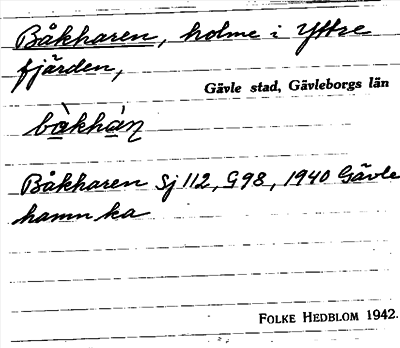 Båkharen, holme i Yttre
fjärden,
Gävle stad, Gävleborgs län
bàkhàn
Båkharen Sj 112, G98, 1940 Gävle
hamn ka
FOLKE HEDBLOM 1942.